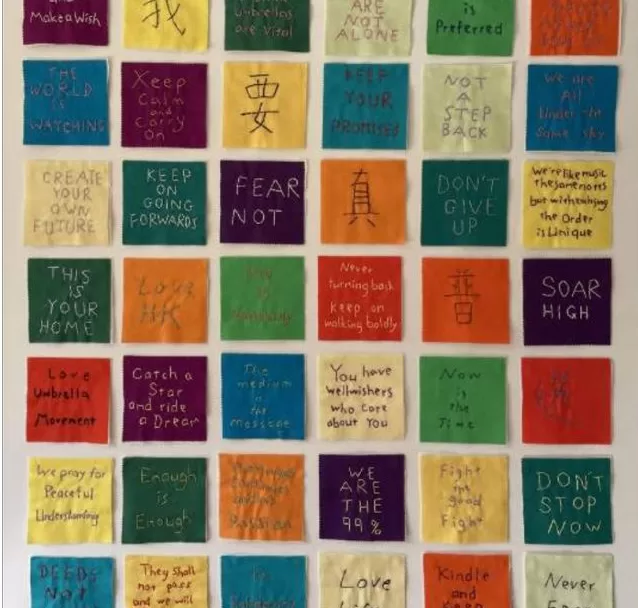 Make a Wish
我
Umbrellas
are Vital
ARE
NOT
ALONE
is
Preferred
THE
WORLD
IS
WATCHING
Keep
Calm
and
Carry
On
覀
女
KEEP
YOUR
PROMISES
NOT
A
STEP
BACK
We are
All
Under the
Same sky
CREATE
YOUR
OWN
FUTURE
KEEP
ON
GOING
FORWARDS
FEAR
NOT
真
DON'T
GIVE
UP
We're like music
the same notes
but with
the Order
is Unique
THIS
IS
YOUR
HOME
Love
HK
is
Never
turning back
keep on
walking boldly
普
SOAR
HIGH
Love
Umbrella
Movement
Catch a
Star
and ride
a Dream
The
medium
is
the
message
You have
wellwishers
who care
about You
Now
is
the
Time
We pray for
Peaceful
Understanding
Enough
is
Enough
Passion
WE
ARE
THE
99%
Fight
the
good
Fight
DON'T
STOP
NOW
DEEDS
NOT
They shall
not pass
and we will
Love
Kindle
and
Keep
Never